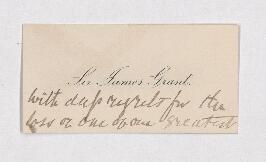 Sir James Grant.
with deep regrets for the
loss of one of our greatest